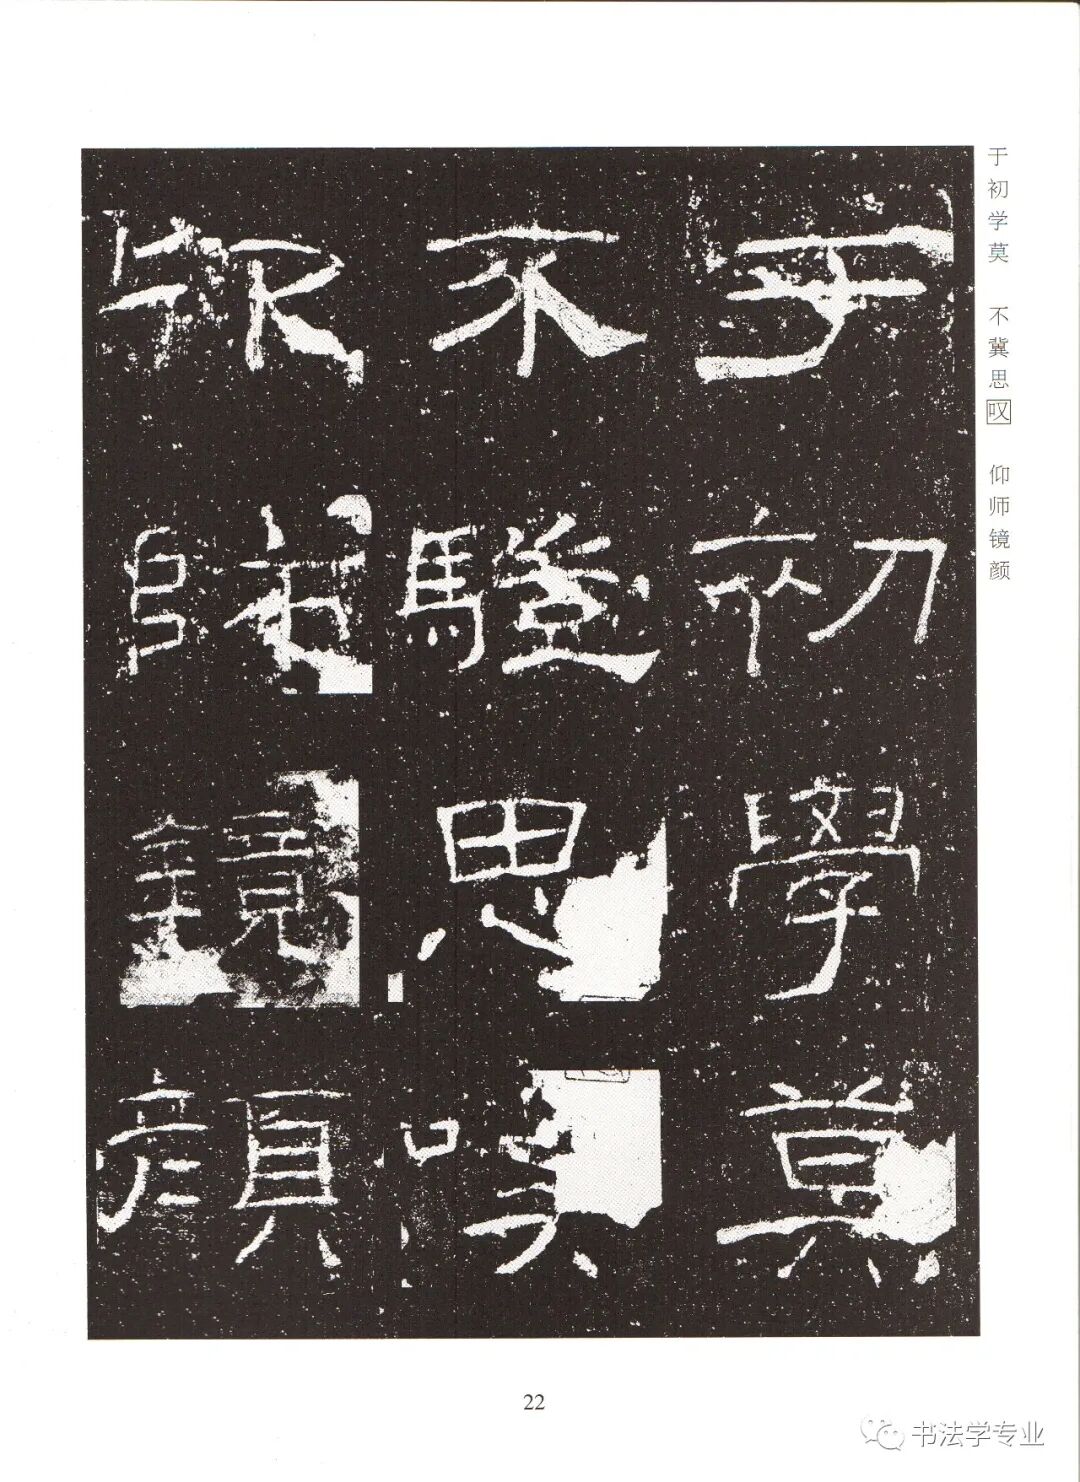 于初学莫　不冀思叹　仰师镜颜
于初學莫
不驥思嘆
卬師鏡顏
22
书法学专业